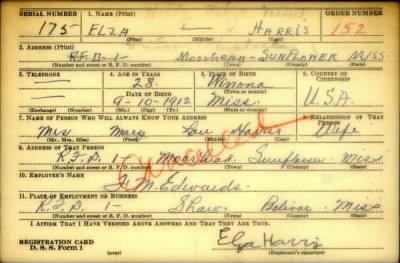 SERIAL NUMBER 1. NAME (Print) ORDER NUMBER
175- ELZA — HARRIS 152
(First) (Middle) (Last)
2. ADDRESS (Print)
R.F.D-1- MOORHEAD - SUNFLOWER MISS
(Number and street or R. F. D. number) (Town) (County) (State)
3. TELEPHONE 4. AGE IN YEARS 5. PLACE OF BIRTH 6. COUNTRY OF CITIZENSHIP
28 Winona
DATE OF BIRTH (Town or county)
9-10-1912 Miss. U.S.A.
(Exchange) (Number) (Mo.) (Day) (Yr.) (State or country)
7. NAME OF PERSON WHO WILL ALWAYS KNOW YOUR ADDRESS RELATIONSHIP OF THAT PERSON
Mrs Mary Lou Harris Wife
(Mr., Mrs., Miss) (First) (Middle) (Last)
8. ADDRESS OF THAT PERSON
R.F.D. 1- Moorhead Sunflower Miss
(Number and street or R. F. D. number) (Town) (County) (State)
10. EMPLOYER'S NAME
M. Edwards.
11. PLACE OF EMPLOYMENT OR BUSINESS
R.F.D. 1- Shaw, Bolivar, Miss
(Number and street or R. F. D. number) (Town) (County) (State)
I AFFIRM THAT I HAVE VERIFIED ABOVE ANSWERS AND THAT THEY ARE TRUE.
REGISTRATION CARD
D. S. S. Form 1 Elza Harris
(Registrant's signature)